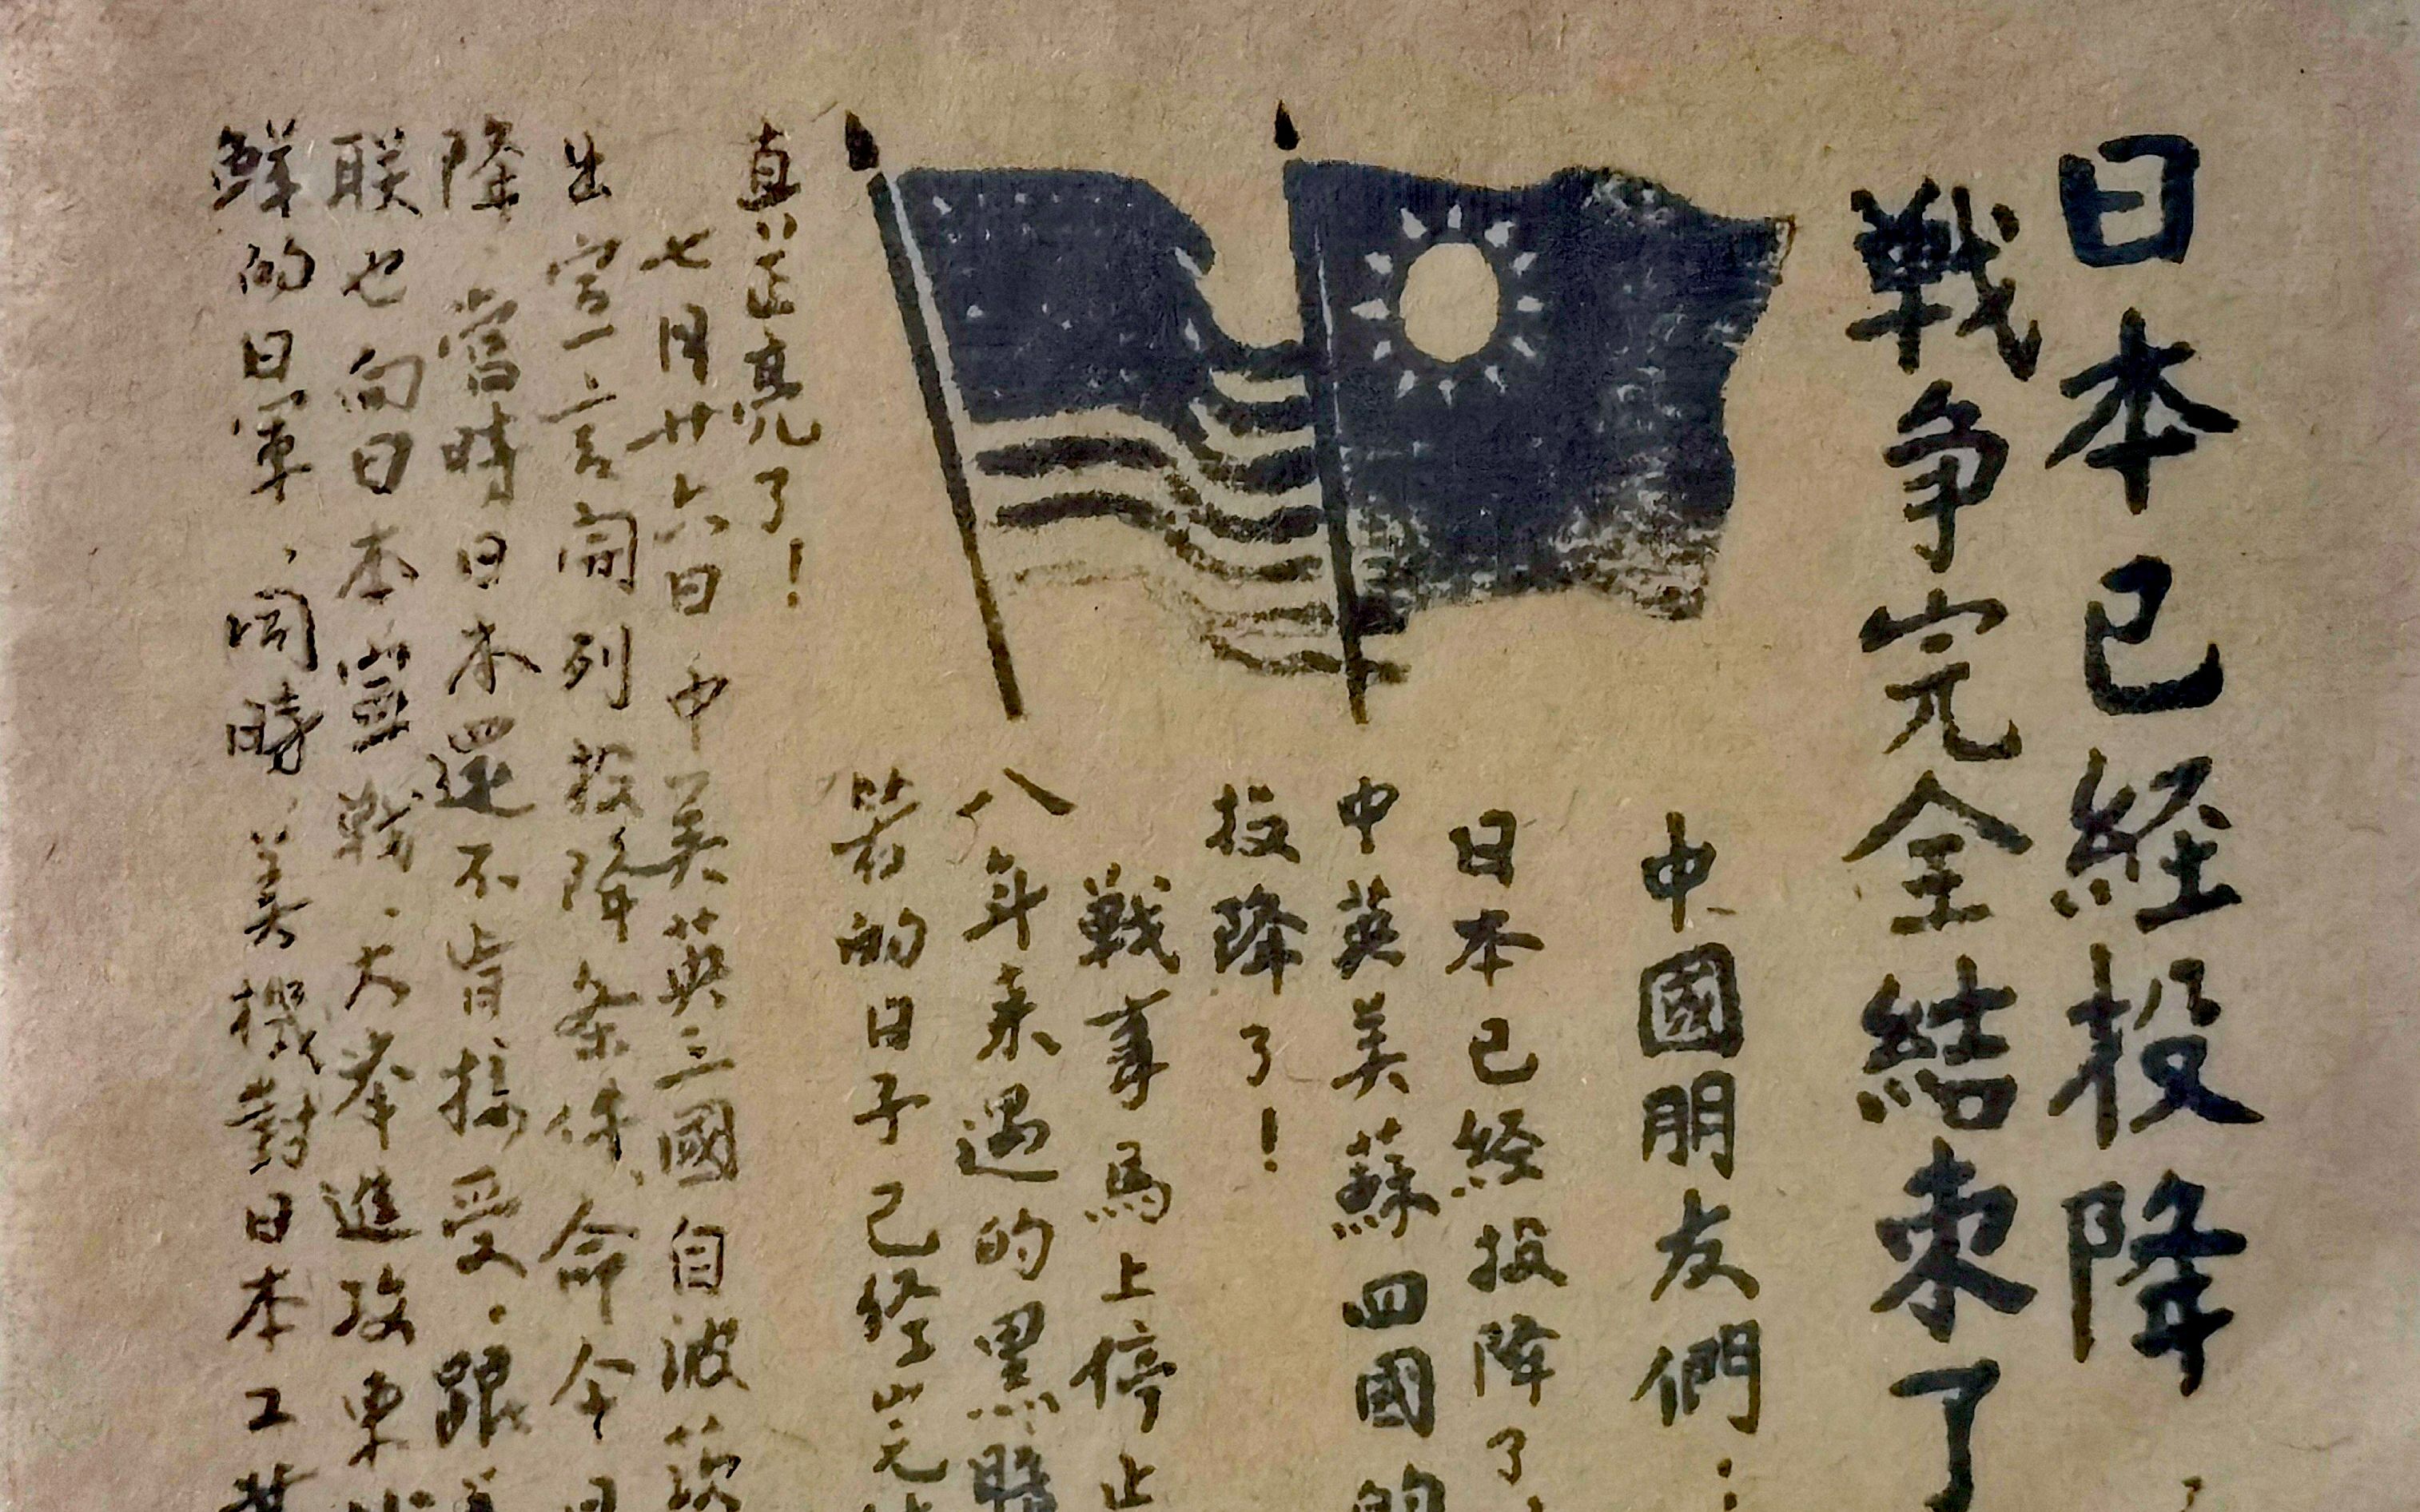 日本已经投降
戦争完全結束了
中國朋友們：
日本已经投降了
中英美蘇四國的
投降了！
戦事馬上停止
八年来過的黒暗
苦的日子已经完
真正亮了！
七月廿六日中美英三國自波茨
出宣言開列投降条件、命令日
降．當時日本還不肯接受．跟
联也向日本宣戦．大挙進攻東
鮮的日軍．同時、美機對日本工